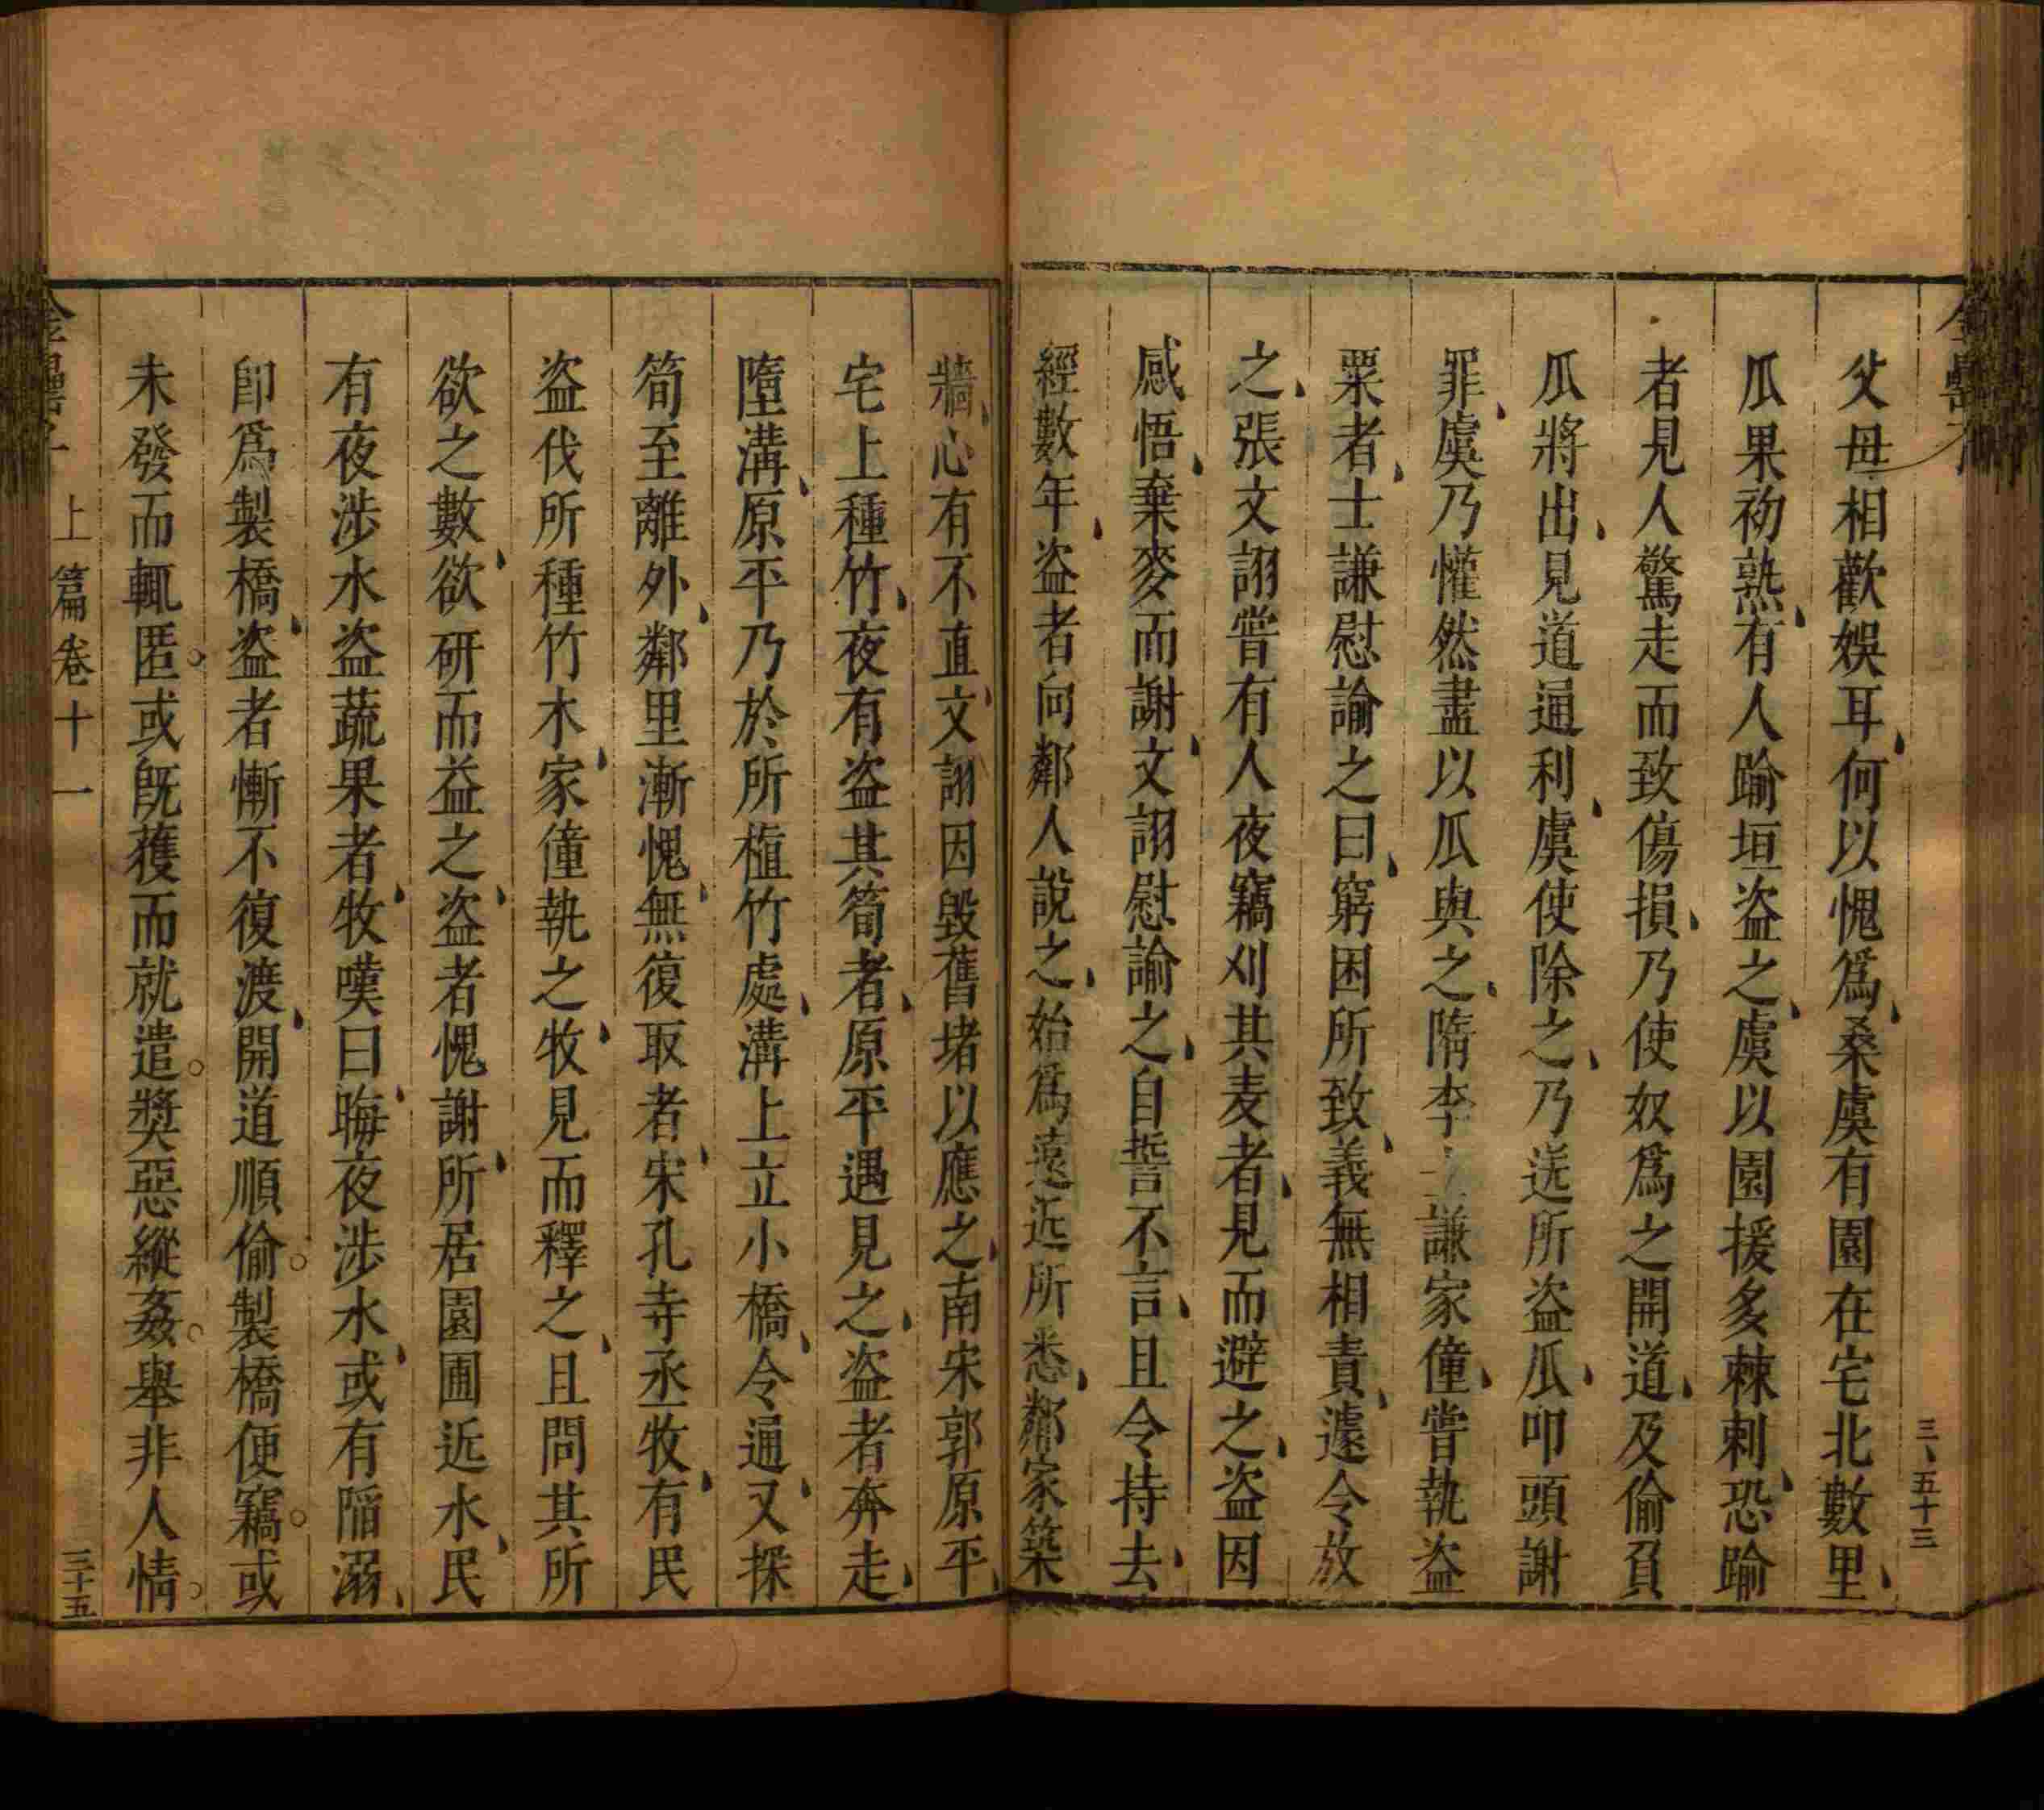 父母相歡娛耳何以愧爲桑虞有園在宅北數里
瓜果初熟有人踰垣盜之虞以園援多棘刺恐踰
者見人驚走而致傷損乃使奴爲之開道及偷負
瓜將出見道通利虞使除之乃送所盜瓜叩頭謝
罪虞乃懽然盡以瓜與之隋李士謙家僮嘗執盜
粟者士謙慰諭之曰窮困所致義無相責遽令放
之張文詡嘗有人夜竊刈其麦者見而避之盜因
感悟棄麥而謝文詡慰諭之自誓不言且令持去
經數年盜者向鄰人說之始爲遠近所悉鄰家築
牆心有不直文詡因毀舊堵以應之南宋郭原平
宅上種竹夜有盜其筍者原平遇見之盜者奔走
墮溝原平乃於所植竹處溝上立小橋令通又採
筍至離外鄰里漸愧無復取者宋孔寺丞牧有民
盜伐所種竹木家僮執之牧見而釋之且問其所
欲之數欲研而益之盜者愧謝所居園圃近水民
有夜涉水盜蔬果者牧嘆曰晦夜涉水或有陷溺
卽爲製橋盜者慚不復渡開道順偷製橋便竊或
未發而輒匿或旣獲而就遣奬惡縱姦舉非人情
上篇卷十一
三十五
三、五十三